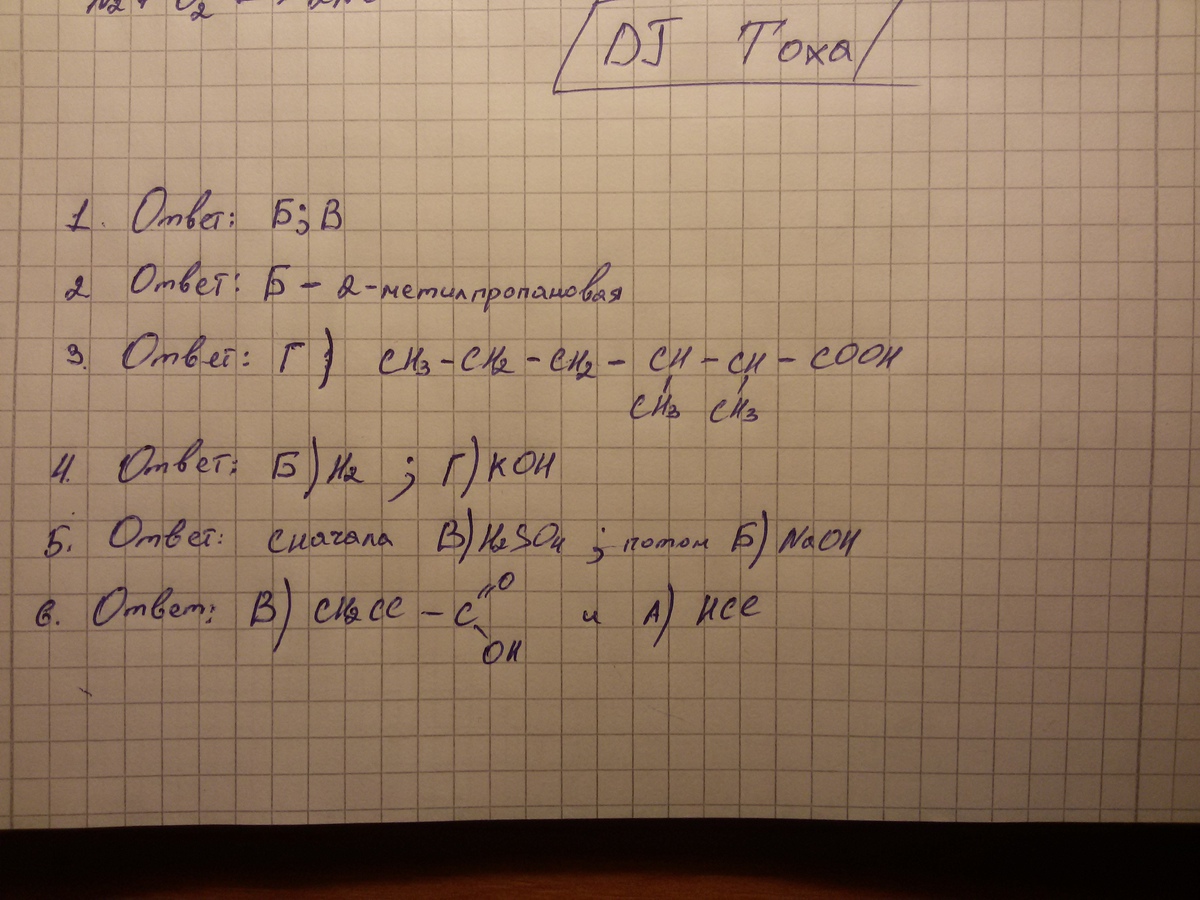 DJ Тоха
1. Ответ: Б; В
2 Ответ: Б - 2-метилпропановая
3. Ответ: Г) CH₃ - CH₂ - CH₂ - CH - CH - COOH
CH₃ CH₃
4. Ответ: Б) H₂ ; Г) KOH
5. Ответ: сначала В) H₂SO₄ ; потом Б) NaOH
6. Ответ: В) CH₂Cl - C =O и А) HCl
OH